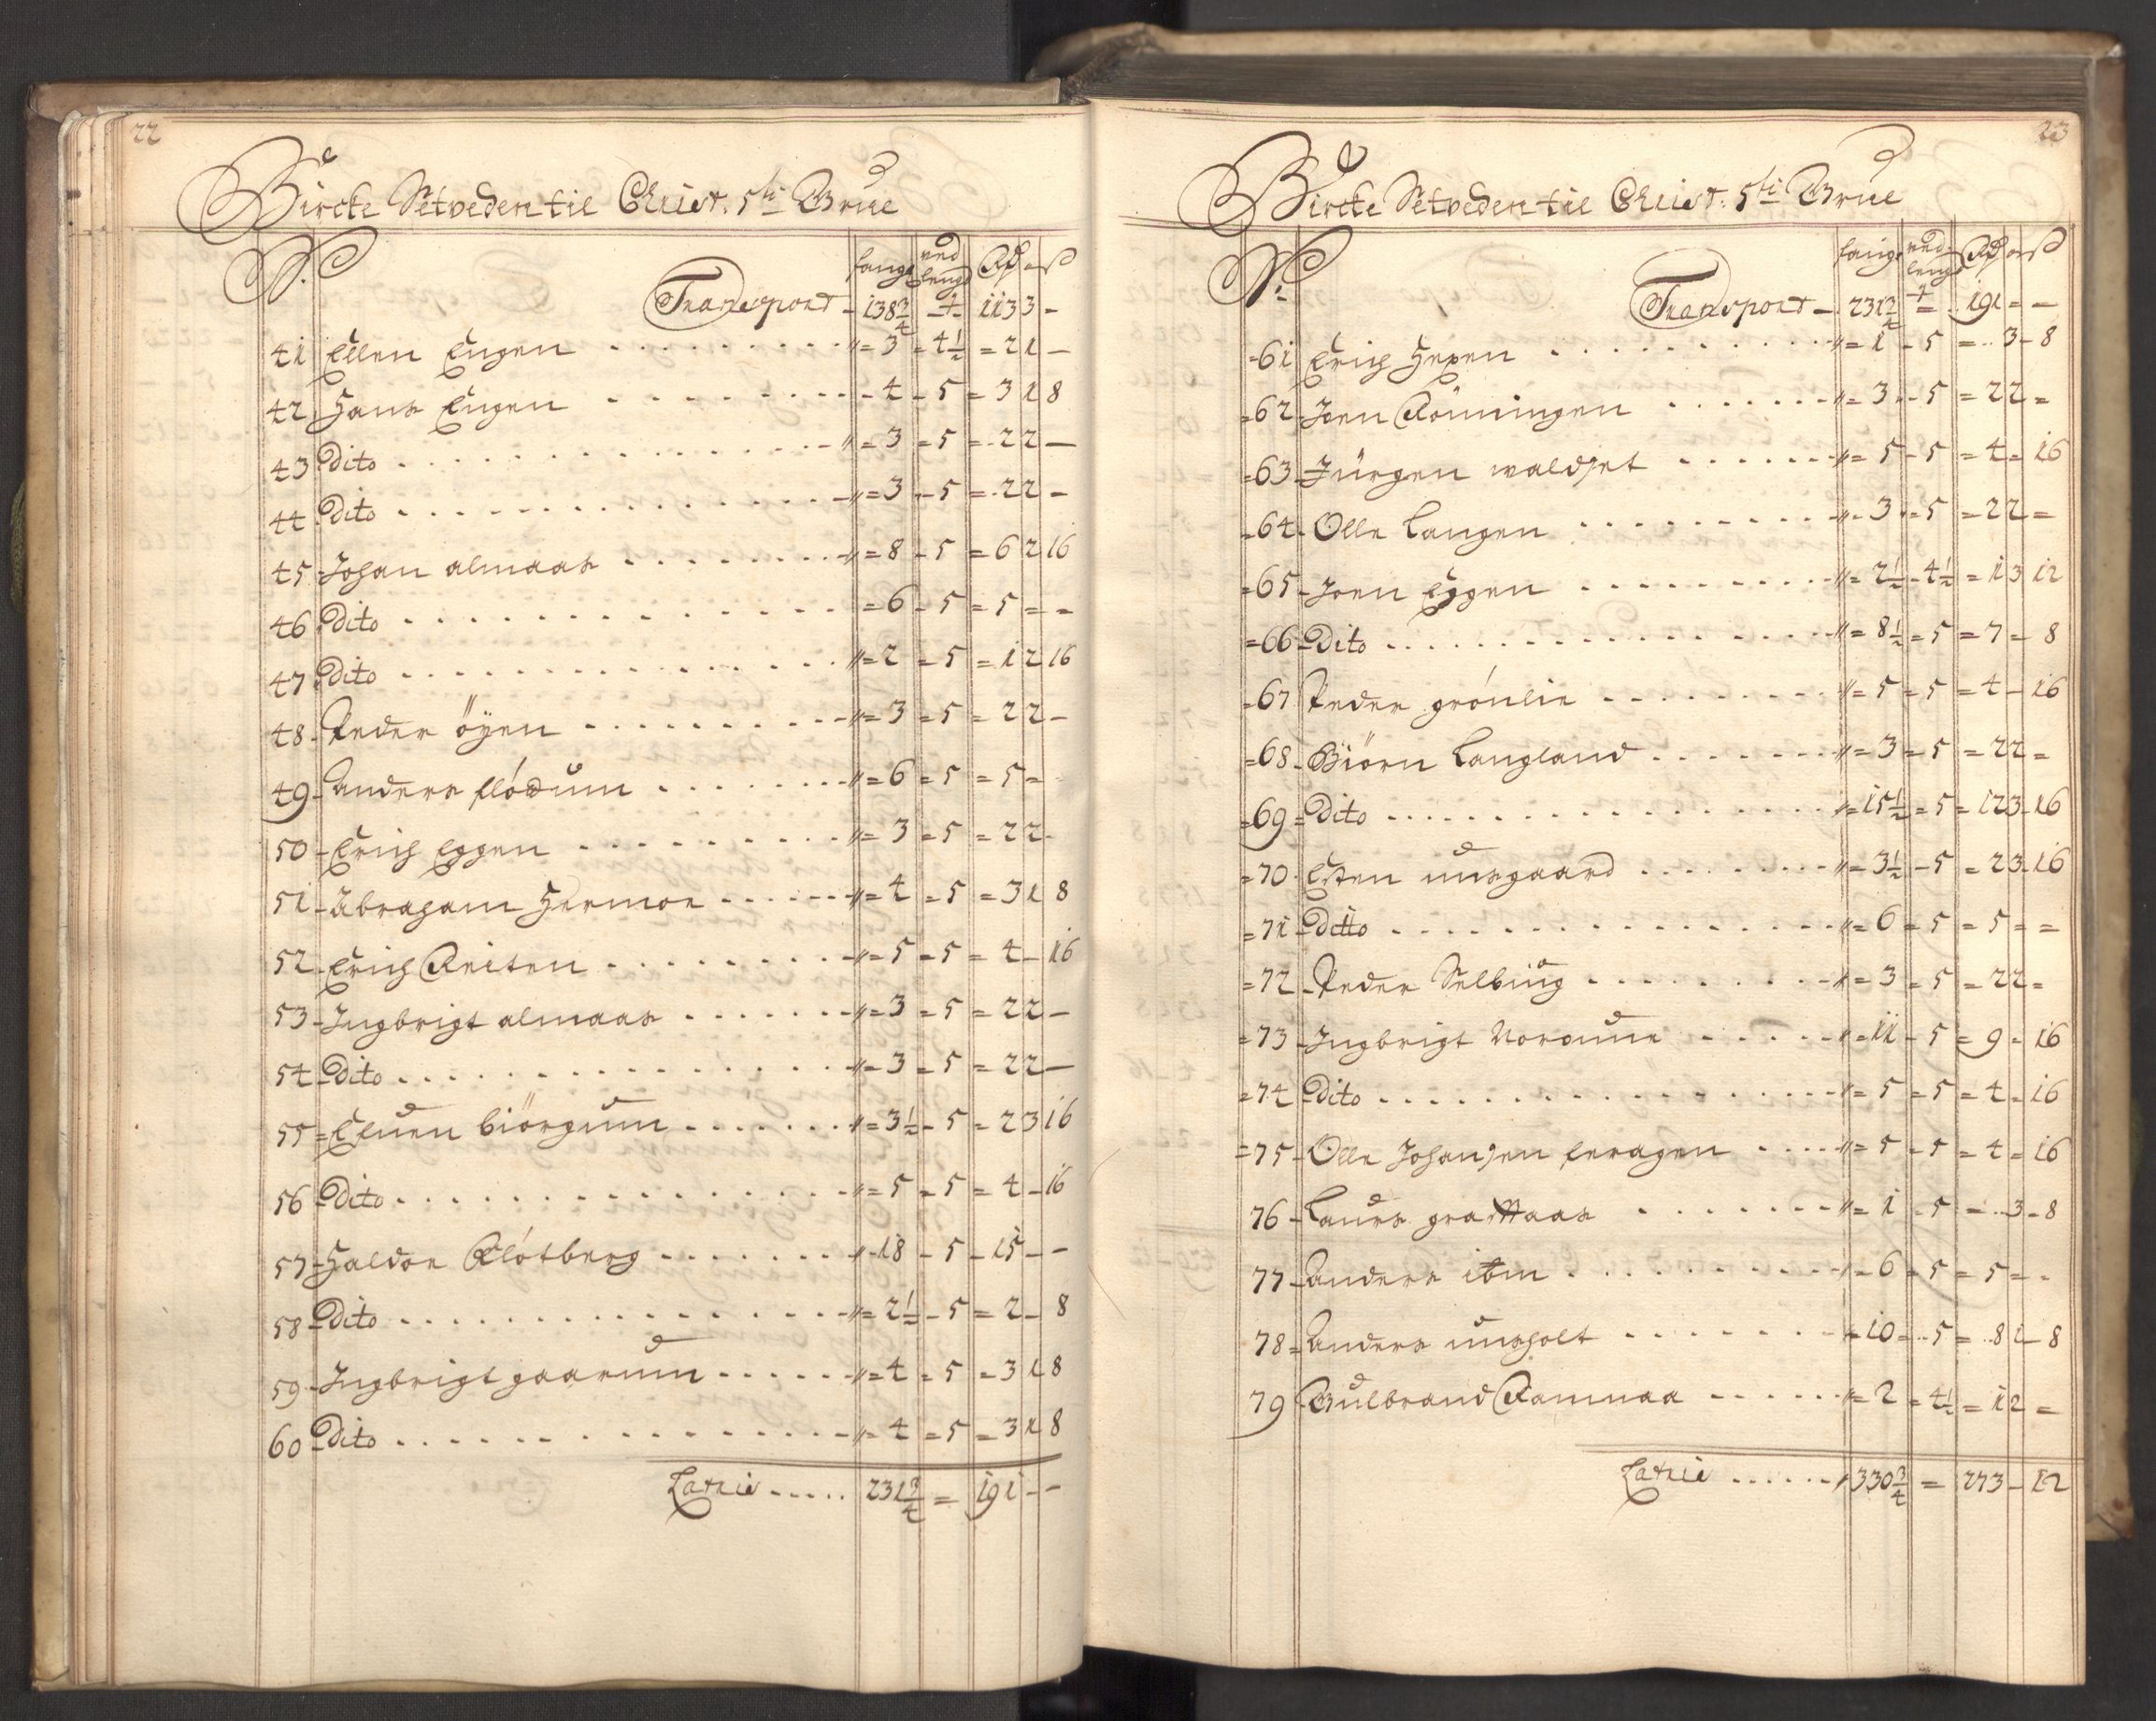 22
Bircke Setveden til Christ. 5ti Grue
No. fang ved lengd Rd ort ß
Transport - 138 3/4 - 4 - 113 3 -
41 Ellen Engen . . . . . . . . . = 3 = 4 1/2 = 2 1 -
42 Hans Engen . . . . . . . . . - 4 - 5 = 3 1 8
43 Dito . . . . . . . . . . . . . = 3 = 5 = 2 2 -
44 Dito . . . . . . . . . . . . . = 3 - 5 = 2 2 -
45 Johan almaas . . . . . . . . = 8 - 5 = 6 2 16
46 Dito . . . . . . . . . . . . . = 6 - 5 = 5 = =
47 Dito . . . . . . . . . . . . . = 2 - 5 = 1 2 16
48 Peder öyen . . . . . . . . . = 3 = 5 = 2 2 -
49 Anders flödum . . . . . . . = 6 = 5 = 5 =
50 Erich Eggen . . . . . . . . . = 3 = 5 = 2 2 -
51 Abraham Hermoe . . . . . . = 4 = 5 = 3 1 8
52 Erich Reiten . . . . . . . . = 5 = 5 = 4 - 16
53 Ingbrigt almaas . . . . . . . = 3 = 5 = 2 2 -
54 Dito . . . . . . . . . . . . . = 3 = 5 = 2 2 -
55 Efuen biörgum . . . . . . . = 3 1/2 - 5 = 2 3 16
56 Dito . . . . . . . . . . . . . = 5 = 5 = 4 - 16
57 Haldor Klötberg . . . . . . . - 18 - 5 - 15 - -
58 Dito . . . . . . . . . . . . . = 2 1/2 - 5 = 2 - 8
59 Ingbrigt gaarum . . . . . . = 4 = 5 = 3 1 8
60 Dito . . . . . . . . . . . . . = 4 = 5 = 3 1 8
Latris . . . . . 231 3/4 = 191 - -
23
Bircke Setveden til Christ. 5ti Grue
No. fang ved lengd Rd ort ß
Transport - 231 3/4 4 = 191 = -
61 Erich Hexen . . . . . . . . . = 1 - 5 = 3 - 8
62 Joen Rönningen . . . . . . . = 3 - 5 = 2 2 =
63 Jürgen waldset . . . . . . . = 5 - 5 = 4 = 16
64 Olle Langen . . . . . . . . . = 3 = 5 = 2 2 =
65 Joen Eggen . . . . . . . . . = 2 1/2 - 4 1/2 = 1 3 12
66 Dito . . . . . . . . . . . . . = 8 1/2 = 5 = 7 - 8
67 Peder grönlie . . . . . . . . = 5 = 5 = 4 - 16
68 Biörn Langland . . . . . . . = 3 = 5 = 2 2 =
69 Dito . . . . . . . . . . . . . = 15 1/2 = 5 = 12 3 - 16
70 Esten unsgaard . . . . . . . = 3 1/2 - 5 = 2 3 - 16
71 Ditto . . . . . . . . . . . . . = 6 = 5 = 5 = =
72 Peder Selbüg . . . . . . . . = 3 = 5 = 2 2 =
73 Ingbrigt Noroune . . . . . = 11 - 5 = 9 - 16
74 Dito . . . . . . . . . . . . . = 5 = 5 = 4 - 16
75 Olle Johansen feragen . . . . = 5 = 5 = 4 = 16
76 Laurs graftaas . . . . . . . = 1 - 5 = 3 - 8
77 Anders ibm . . . . . . . . . = 6 = 5 = 5 = -
78 Anders unsholt . . . . . . . = 10 = 5 = 8 1 - 8
79 Gulbrand Ramnaa . . . . . . = 2 = 4 1/2 = 1 2 =
Latris . . . . . . 330 3/4 = 273 - 12